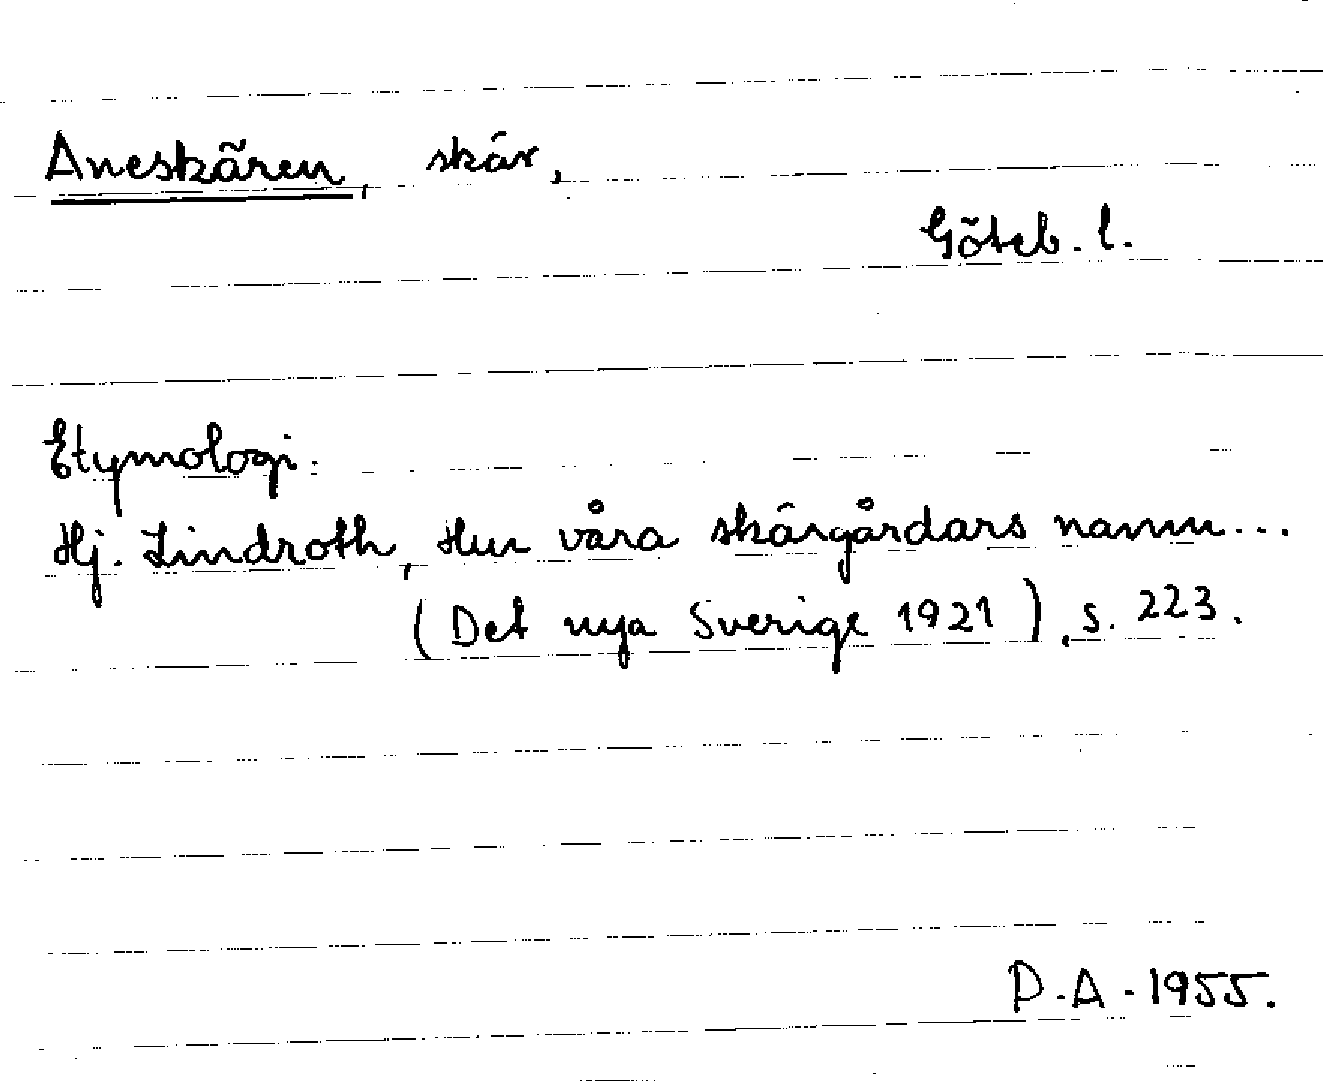 Aneskären, skär,
Göteb. l.
Etymologi:
Hj. Lindroth, Hur våra skärgårdars namn...
(Det nya Sverige 1921), s. 223.
P.A. 1955.